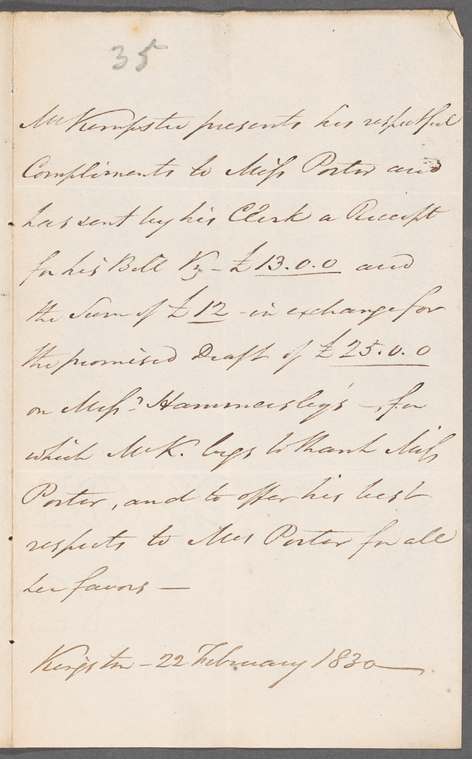 35
Mr Kempster presents his respectful
Compliments to Miss Porter and
has sent by his Clerk a Receipt
for his Bill Vz - £13.0.0 and
the Sum of £12 - in exchange for
the promised Draft of £25.0.0
on Messrs Hammersley's - for
which Mr K. begs to thank Miss
Porter, and to offer his best
respects to Mrs Porter for all
her favors -
Kingston - 22 February 1830